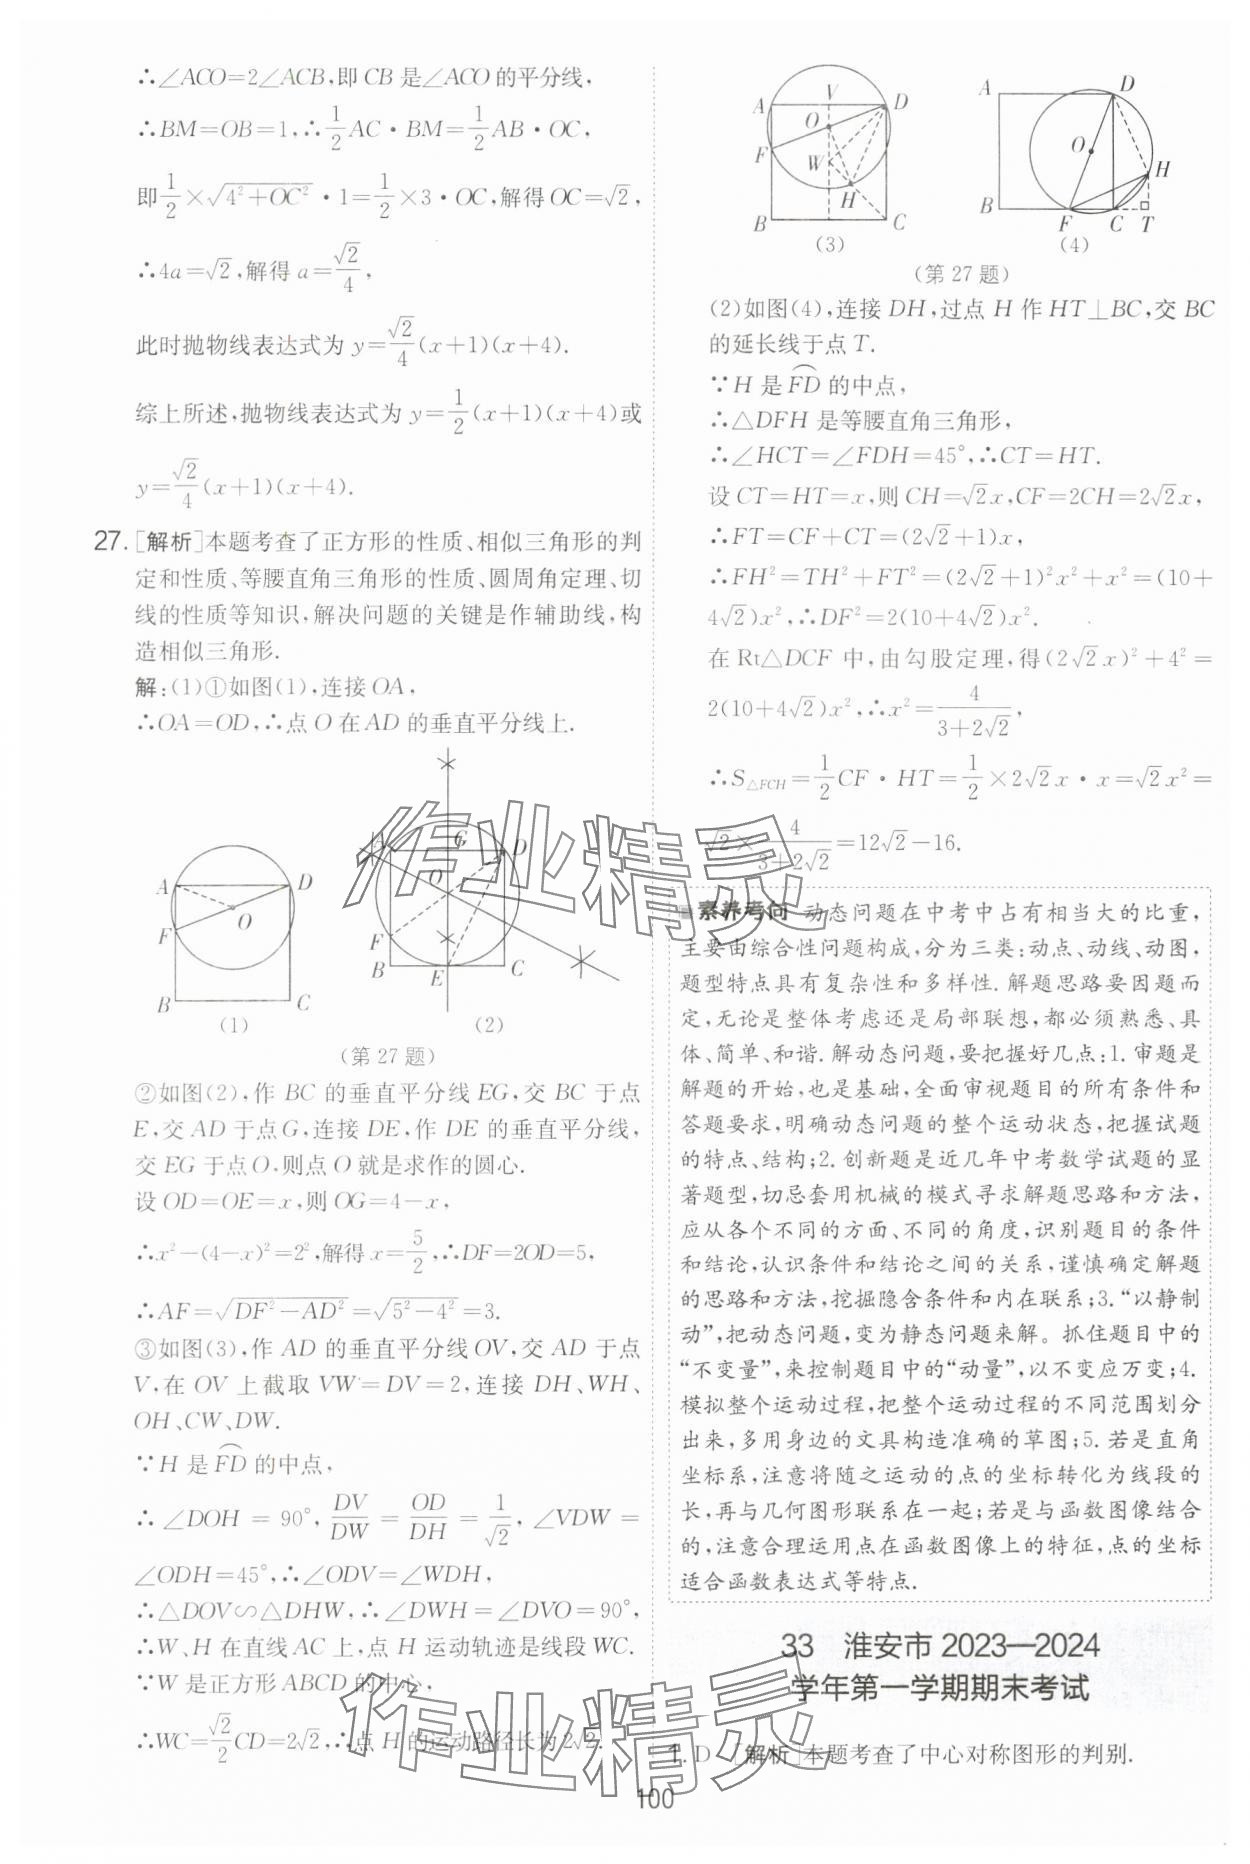 ∴∠ACO=2∠ACB,即 CB 是∠ACO 的平分线,
∴BM=OB=1,∴1/2 AC·BM=1/2 AB·OC,
即1/2×√(4²+OC²)·1=1/2×3·OC,解得 OC=√2,
∴4a=√2,解得 a=√2/4,
此时抛物线表达式为 y=√2/4(x+1)(x+4).
综上所述,抛物线表达式为 y=1/2(x+1)(x+4)或
y=√2/4(x+1)(x+4).
27. [解析]本题考查了正方形的性质、相似三角形的判
定和性质、等腰直角三角形的性质、圆周角定理、切
线的性质等知识,解决问题的关键是作辅助线,构
造相似三角形.
解:(1)①如图(1),连接 OA,
∴OA=OD,∴点 O 在 AD 的垂直平分线上.
A D O F B C
(1)
A G D O F B E C
(2)
(第 27 题)
②如图(2),作 BC 的垂直平分线 EG,交 BC 于点
E,交 AD 于点 G,连接 DE,作 DE 的垂直平分线,
交 EG 于点 O,则点 O 就是求作的圆心.
设 OD=OE=x,则 OG=4-x,
∴x²-(4-x)²=2²,解得 x=5/2,∴DF=2OD=5,
∴AF=√(DF²-AD²)=√(5²-4²)=3.
③如图(3),作 AD 的垂直平分线 OV,交 AD 于点
V,在 OV 上截取 VW=DV=2,连接 DH、WH、
OH、CW、DW.
∵H 是 F͡D 的中点,
∴ ∠DOH = 90°, DV/DW = OD/DH = 1/√2, ∠VDW =
∠ODH=45°,∴∠ODV=∠WDH,
∴△DOV∽△DHW,∴∠DWH=∠DVO=90°,
∴W、H 在直线 AC 上,点 H 运动轨迹是线段 WC.
∵W 是正方形 ABCD 的中心,
∴WC=√2/2 CD=2√2,∴点 H 的运动路径长为 2√2.
A V D O F W H B C
(3)
A D O H B F C T
(4)
(第 27 题)
(2)如图(4),连接 DH,过点 H 作 HT⊥BC,交 BC
的延长线于点 T.
∵H 是 F͡D 的中点,
∴△DFH 是等腰直角三角形,
∴∠HCT=∠FDH=45°,∴CT=HT.
设 CT=HT=x,则 CH=√2x,CF=2CH=2√2x,
∴FT=CF+CT=(2√2+1)x,
∴FH²=TH²+FT²=(2√2+1)²x²+x²=(10+
4√2)x²,∴DF²=2(10+4√2)x².
在 Rt△DCF 中,由勾股定理,得(2√2x)²+4²=
2(10+4√2)x²,∴x²=4/(3+2√2),
∴S△FCH=1/2 CF·HT=1/2×2√2x·x=√2x²=
√2×4/(3+2√2)=12√2-16.
素养考向 动态问题在中考中占有相当大的比重,
主要由综合性问题构成,分为三类:动点、动线、动图,
题型特点具有复杂性和多样性.解题思路要因题而
定,无论是整体考虑还是局部联想,都必须熟悉、具
体、简单、和谐.解动态问题,要把握好几点:1.审题是
解题的开始,也是基础,全面审视题目的所有条件和
答题要求,明确动态问题的整个运动状态,把握试题
的特点、结构;2.创新题是近几年中考数学试题的显
著题型,切忌套用机械的模式寻求解题思路和方法,
应从各个不同的方面、不同的角度,识别题目的条件
和结论,认识条件和结论之间的关系,谨慎确定解题
的思路和方法,挖掘隐含条件和内在联系;3.“以静制
动”,把动态问题,变为静态问题来解。抓住题目中的
“不变量”,来控制题目中的“动量”,以不变应万变;4.
模拟整个运动过程,把整个运动过程的不同范围划分
出来,多用身边的文具构造准确的草图;5.若是直角
坐标系,注意将随之运动的点的坐标转化为线段的
长,再与几何图形联系在一起;若是与函数图像结合
的,注意合理运用点在函数图像上的特征,点的坐标
适合函数表达式等特点.
33 淮安市 2023—2024
学年第一学期期末考试
1. D [解析]本题考查了中心对称图形的判别.
100
作业精灵
作业精灵